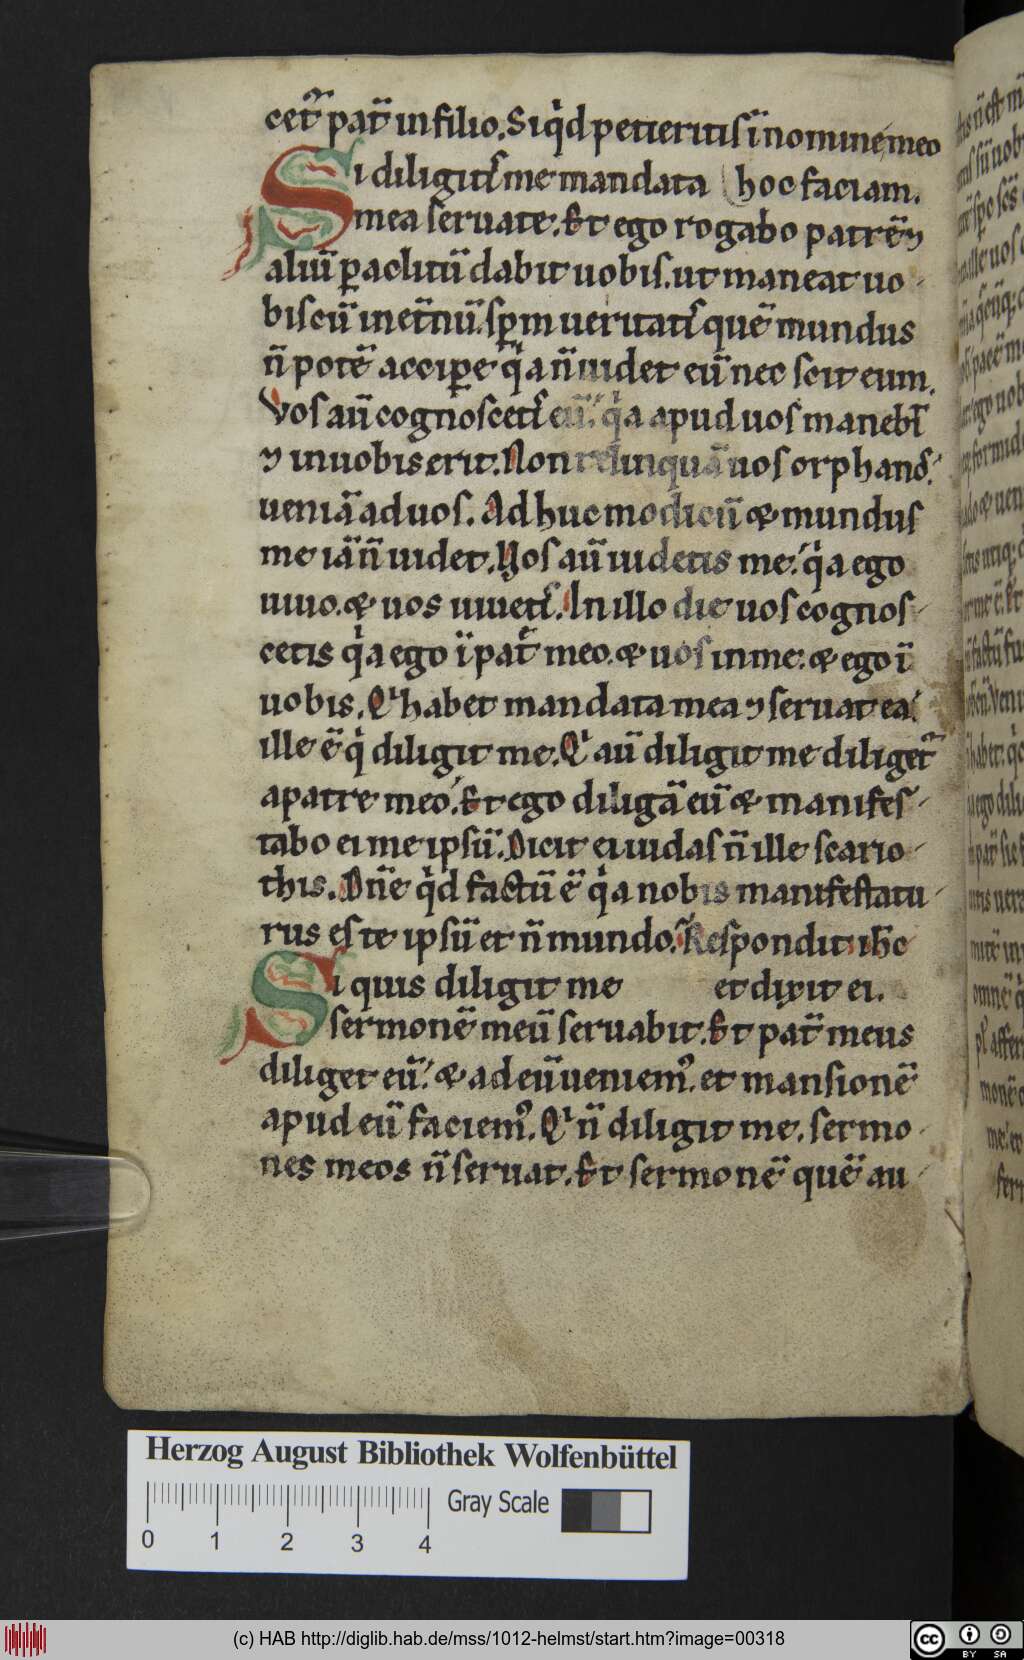 cet᷑ pat̄ in filio. Si qͥd petieritis ī nomine meo
Si diligit᷑ me mandata hoc faciam.
mea seruate. Et ego rogabo patrē ⁊
aliū ꝑaclitū dabit uobis. ut maneat uo
biscū in et̄nū. sp̄m ueritat᷑ quē mundus
n̄ potē accipe qͥa n̄ uidet eū nec scit eum.
Vos aū cognoscet᷑ eū. qͥa apud uos manebt̄
⁊ in uobis erit. Non relinquā uos orphanos.
ueniā ad uos. Adhuc modicū & mundus
me iā n̄ uidet. Vos aū uidetis me. qͥa ego
uiuo. & uos uiuet᷑. In illo die uos cognos
cetis qͥa ego ī pat᷑ meo. & uos in me. & ego ī
uobis. Qͥ habet mandata mea ⁊ seruat ea.
ille ē qͥ diligit me. Qͥ aū diligit me diliget᷑
a patre meo. Et ego diligā eū & manifes
tabo ei me ipsū. Dicit ei iudas n̄ ille scario
this. Dn̄e qͥd factū ē qͥa nobis manifestatu
rus es te ipsū et n̄ mundo. Respondit ih̄c
Si quis diligit me et dixit ei.
sermonē meū seruabit. Et pat̄ meus
diliget eū. & ad eū ueniemꝰ. et mansionē
apud eū faciemꝰ. Qͥ n̄ diligit me. sermo
nes meos n̄ seruat. Et sermonē quē au
Herzog August Bibliothek Wolfenbüttel
Gray Scale
0 1 2 3 4
(c) HAB http://diglib.hab.de/mss/1012-helmst/start.htm?image=00318
cc BY SA